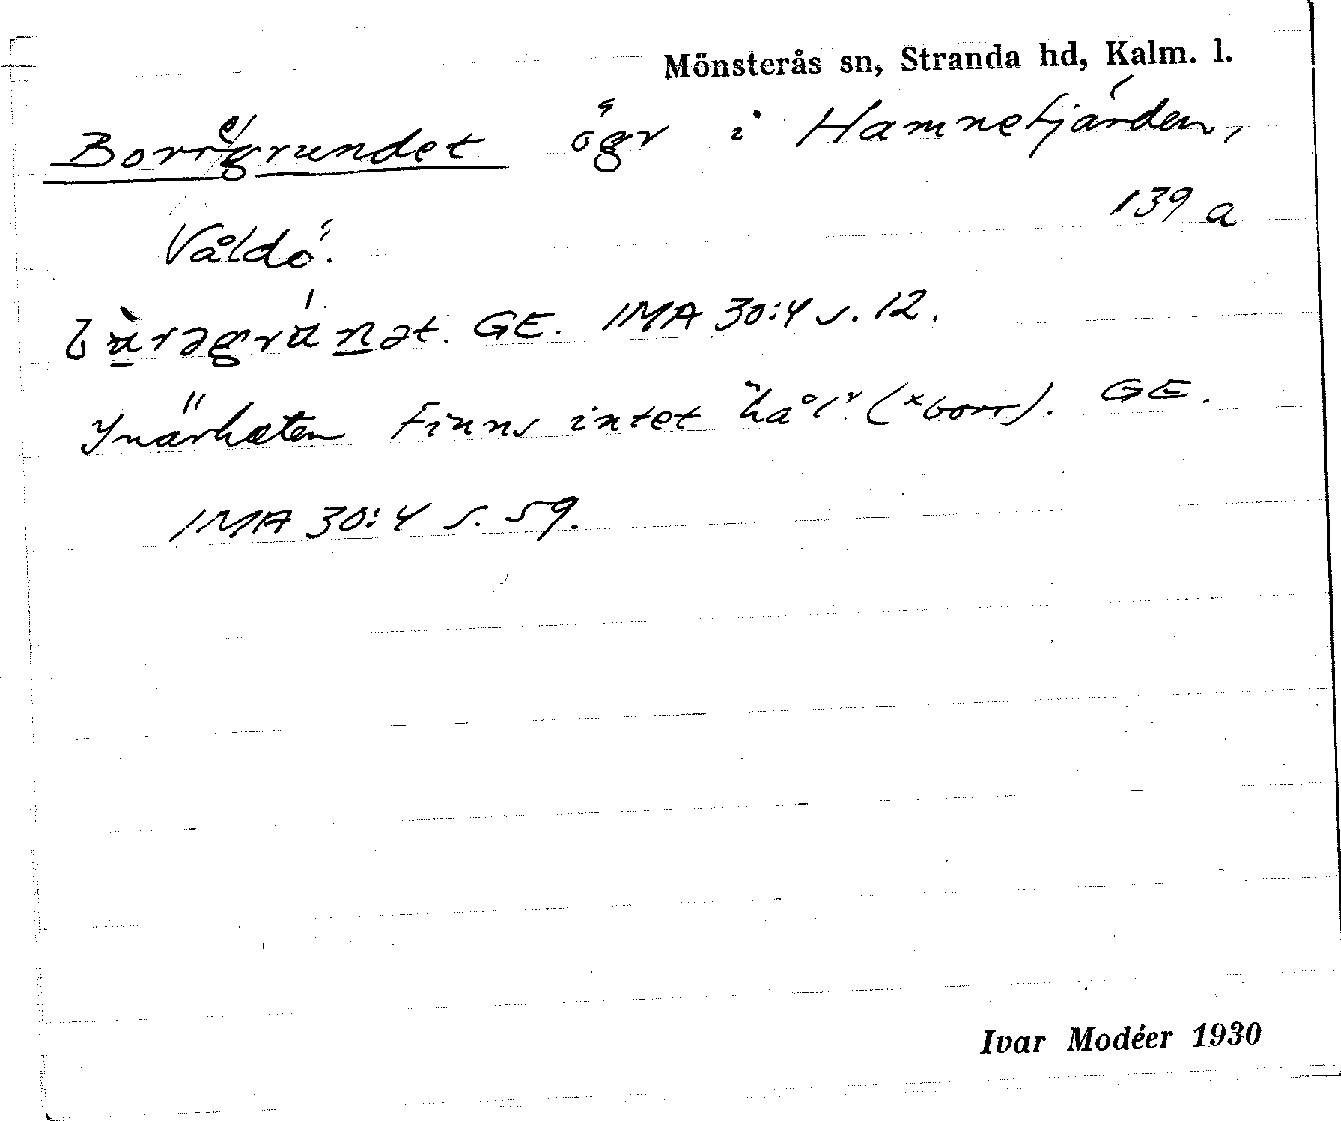 Mönsterås sn, Stranda hd, Kalm. l.
Borregrundet ögr i Hamnefjärden,
139 a
Våldö.
GE. IMA 30:4 s. 12.
I närheten finns intet "hål" (*borr). GE.
IMA 30:4 s. 59.
Ivar Modéer 1930